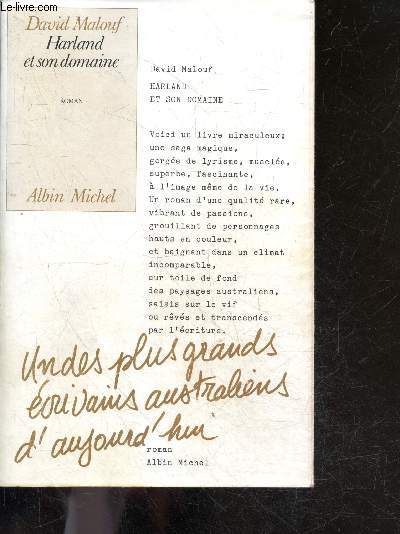 David Malouf
Harland
et son domaine
ROMAN
Albin Michel
David Malouf
HARLAND
ET SON DOMAINE
Voici un livre miraculeux;
une saga magique,
gorgée de lyrisme, musclée,
superbe, fascinante,
à l'image même de la vie.
Un roman d'une qualité rare,
vibrant de passions,
grouillant de personnages
hauts en couleur,
et baignant dans un climat
incomparable,
sur toile de fond
des paysages australiens,
saisis sur le vif
ou rêvés et transcendés
par l'écriture.
Un des plus grands
écrivains australiens
d'aujourd'hui
roman
Albin Michel